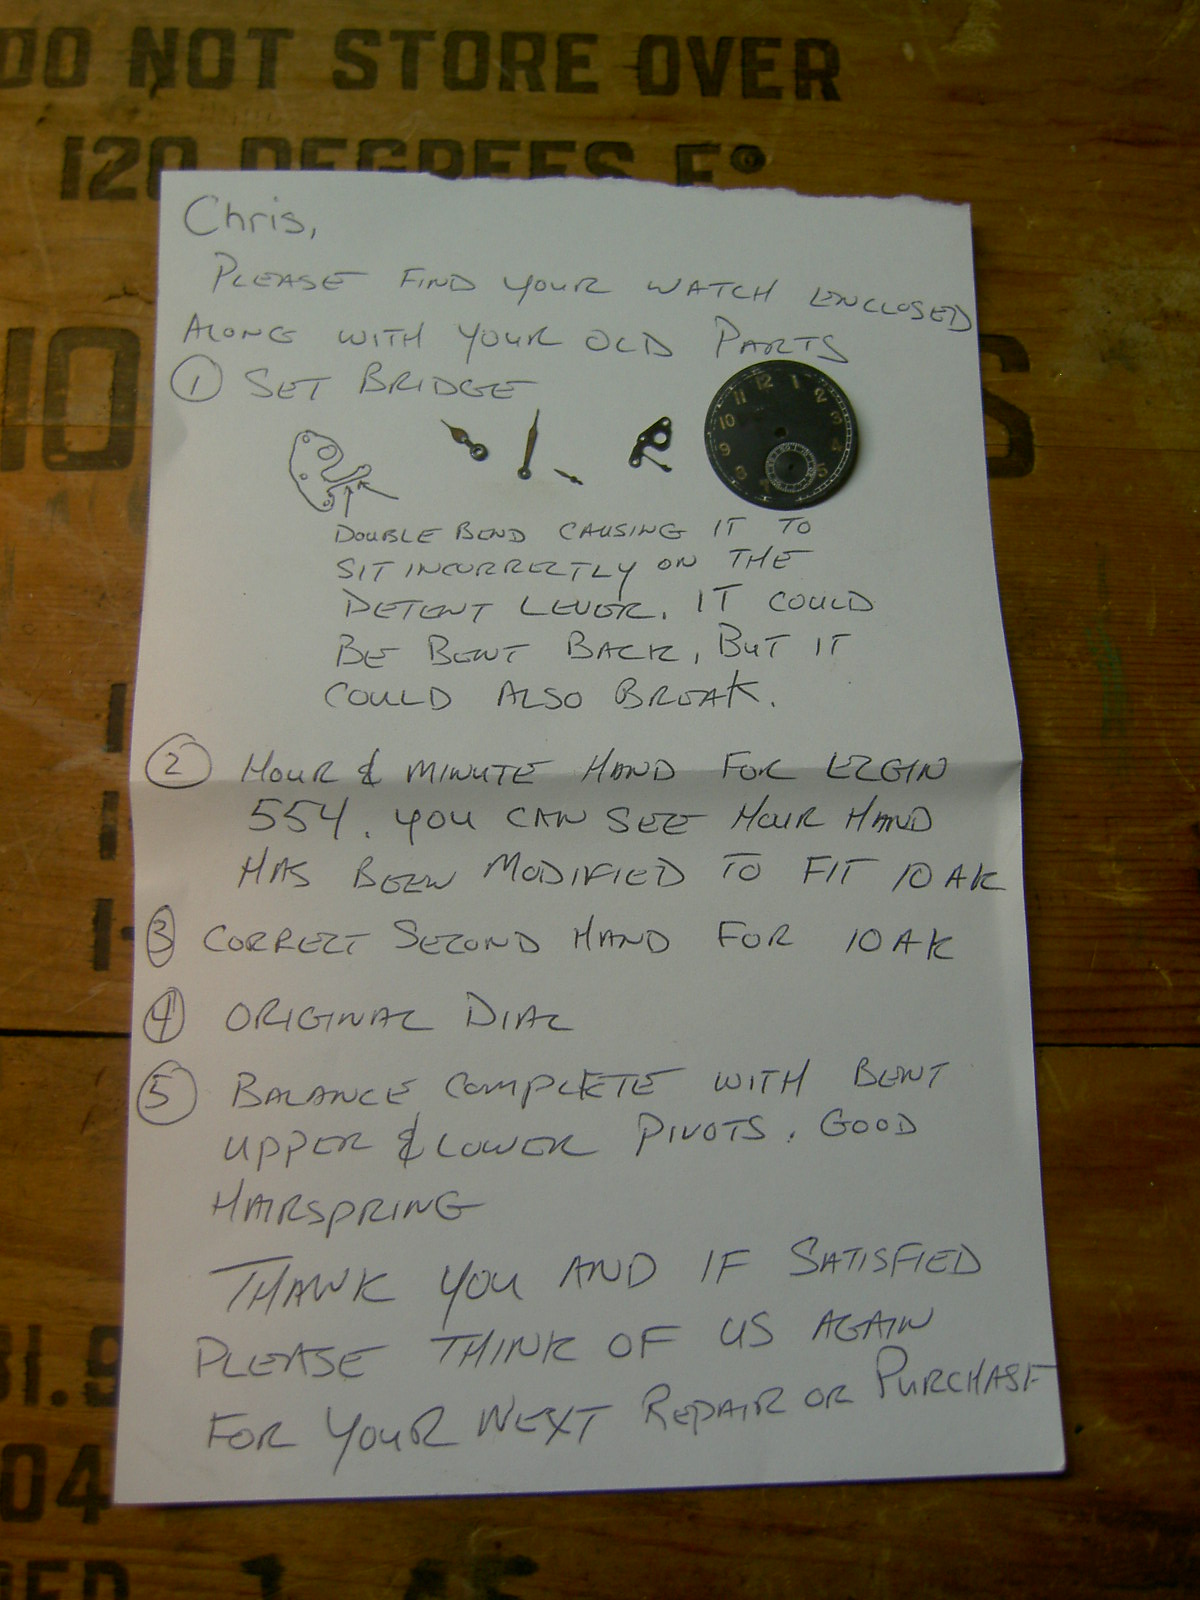 DO NOT STORE OVER
120 DEGREES F°
Chris,
PLEASE FIND YOUR WATCH ENCLOSED
ALONG WITH YOUR OLD PARTS
① SET BRIDGE
12 1 2 3 4 5 7 8 9 10 11
DOUBLE BEND CAUSING IT TO
SIT INCORRECTLY ON THE
DETENT LEVER. IT COULD
BE BENT BACK, BUT IT
COULD ALSO BREAK.
② HOUR & MINUTE HAND FOR ELGIN
554. YOU CAN SEE HOUR HAND
HAS BEEN MODIFIED TO FIT 10AK
③ CORRECT SECOND HAND FOR 10AK
④ ORIGINAL DIAL
⑤ BALANCE COMPLETE WITH BENT
UPPER & LOWER PIVOTS. GOOD
HAIRSPRING
THANK YOU AND IF SATISFIED
PLEASE THINK OF US AGAIN
FOR YOUR NEXT REPAIR OR PURCHASE